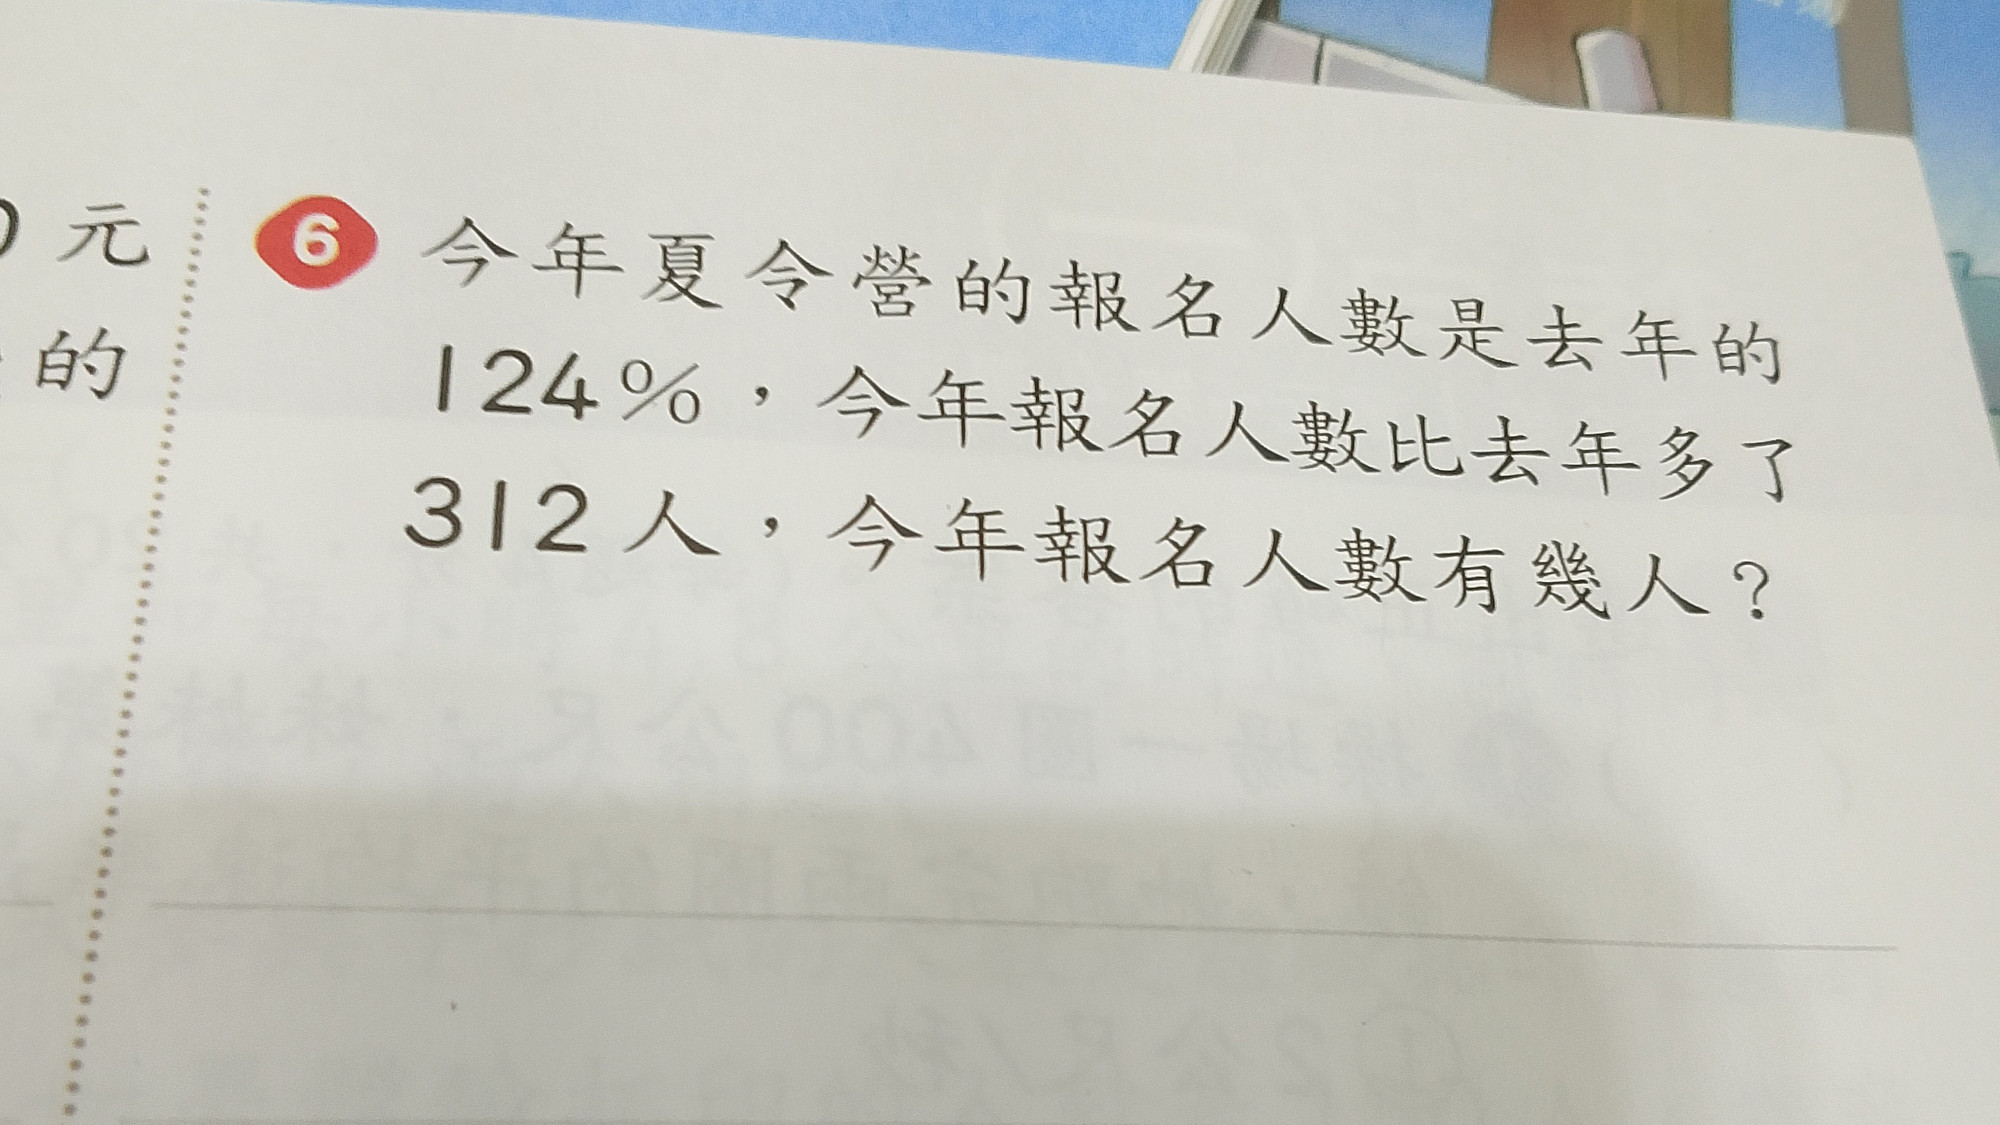 元
的
6 今年夏令營的報名人數是去年的
124%，今年報名人數比去年多了
312人，今年報名人數有幾人？